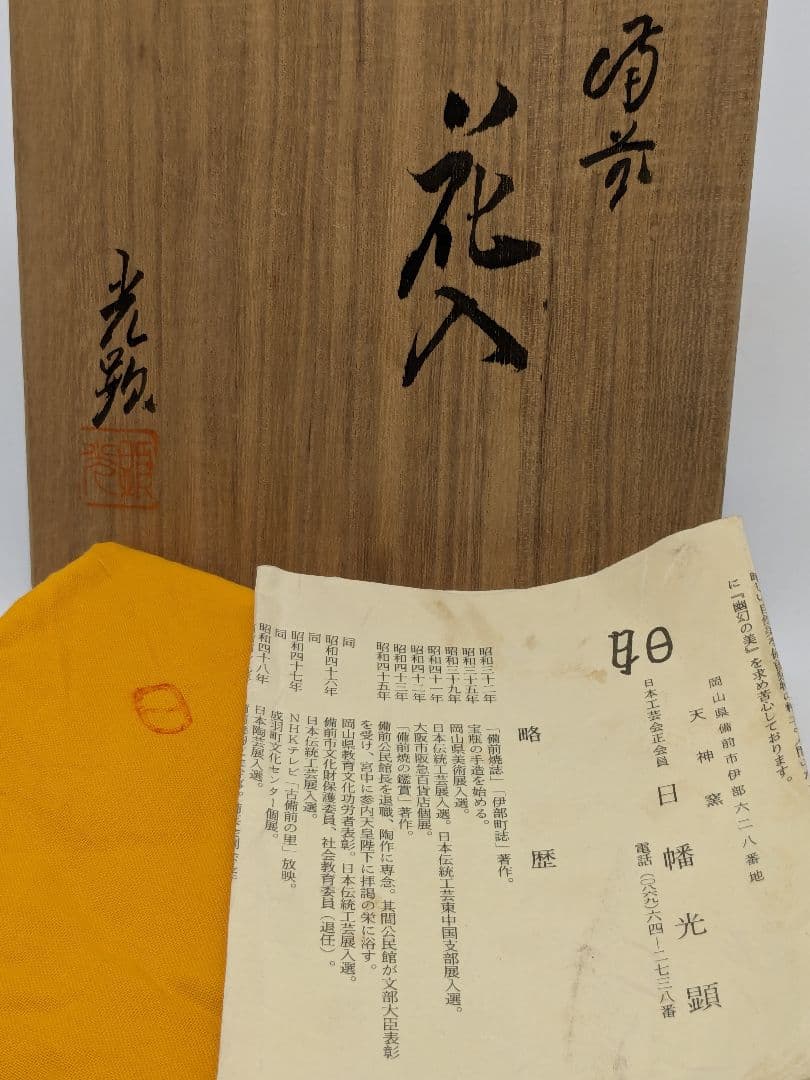 備前
花入
光顕
に『幽幻の美』を求め苦心しております。
岡山県備前市伊部六二八番地
天神窯
日本工芸会正会員 日幡光顕
電話(〇八六九)六四ー二七三八番
略歴
昭和三十二年 「備前焼誌」「伊部町誌」著作。
昭和三十五年 宝瓶の手造を始める。
昭和三十九年 岡山県美術展入選。
昭和四十一年 日本伝統工芸展入選。日本伝統工芸東中国支部展入選。
昭和四十二年 大阪市阪急百貨店個展。
昭和四十三年 「備前焼の鑑賞」著作。
昭和四十五年 備前公民館長を退職、陶作に専念。其間公民館が文部大臣表彰
を受け、宮中に参内天皇陛下に拝謁の栄に浴す。
同 岡山県教育文化功労者表彰。日本伝統工芸展入選。
昭和四十六年 備前市文化財保護委員、社会教育委員(退任)。
同 日本伝統工芸展入選。
昭和四十七年 NHKテレビ「古備前の里」放映。
同 成羽町文化センター個展。
昭和四十八年 日本陶芸展入選。